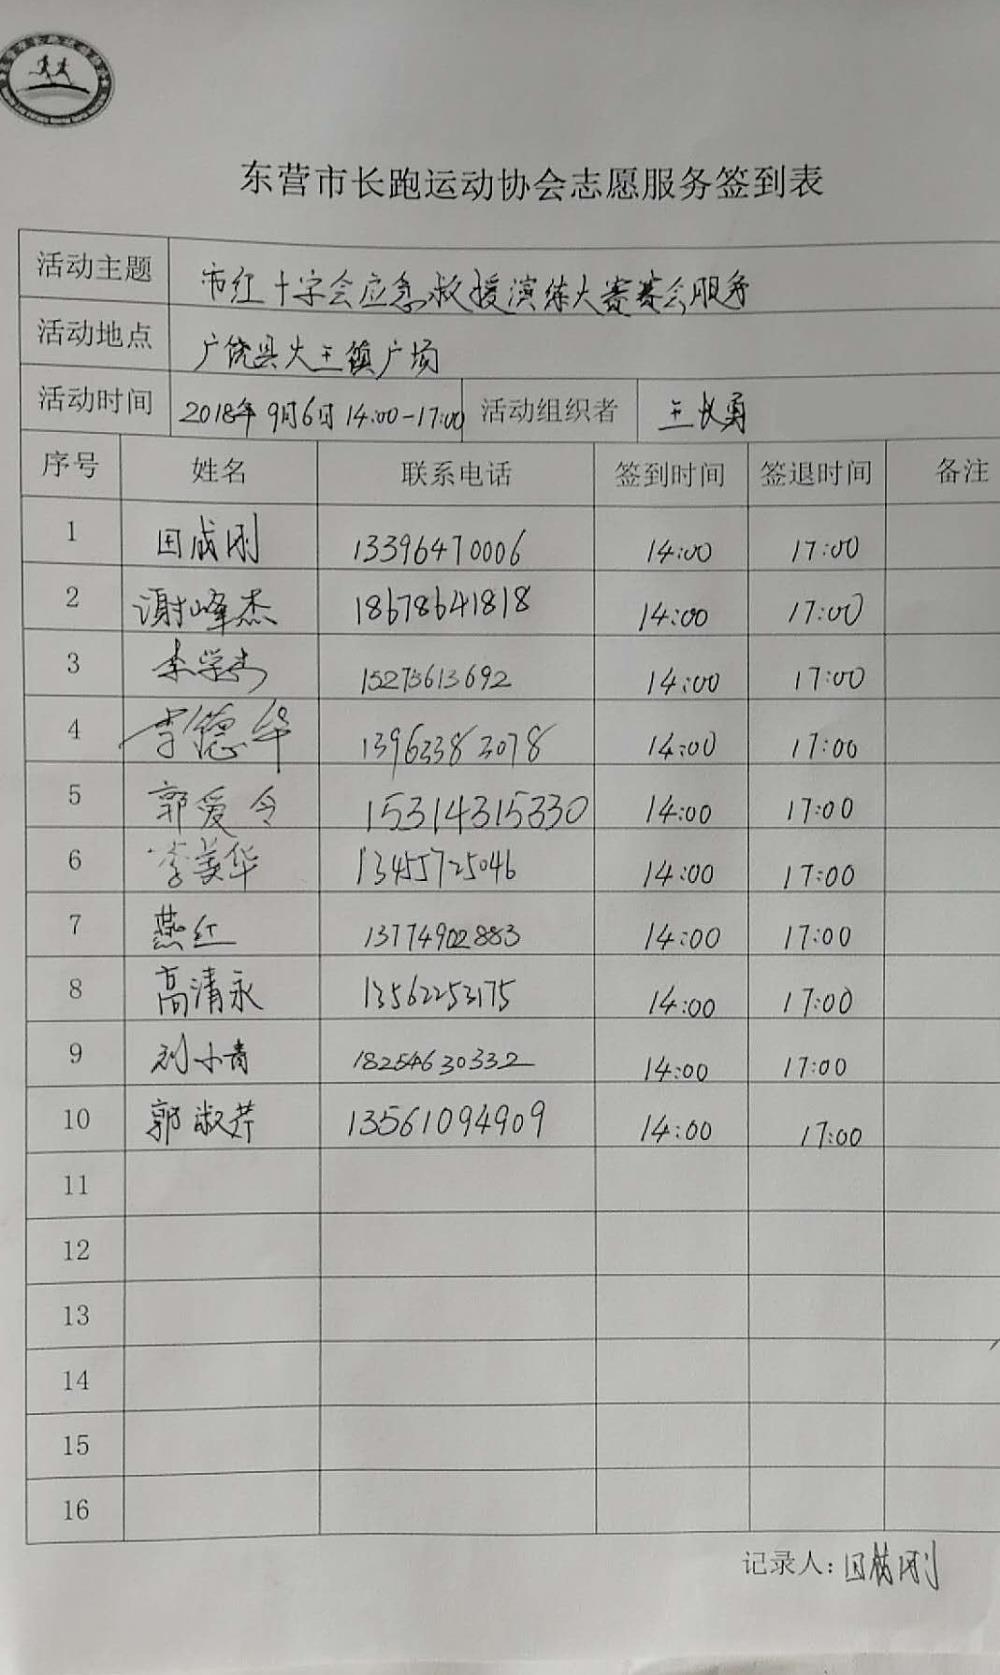 东营市长跑运动协会志愿服务签到表
活动主题 市红十字会应急救援演练大赛赛会服务
活动地点 广饶县大王镇广场
活动时间 2018年9月6日14:00-17:00 活动组织者 王长勇
序号 姓名 联系电话 签到时间 签退时间 备注
1 田成刚 13396470006 14:00 17:00
2 谢峰杰 18678641818 14:00 17:00
3 15275613692 14:00 17:00
4 李德华 13963382078 14:00 17:00
5 郭爱令 15314315330 14:00 17:00
6 李美华 13455725046 14:00 17:00
7 燕红 13774902883 14:00 17:00
8 高清永 13562253175 14:00 17:00
9 刘小青 18254630332 14:00 17:00
10 郭淑芹 13561094909 14:00 17:00
11
12
13
14
15
16
记录人：田成刚